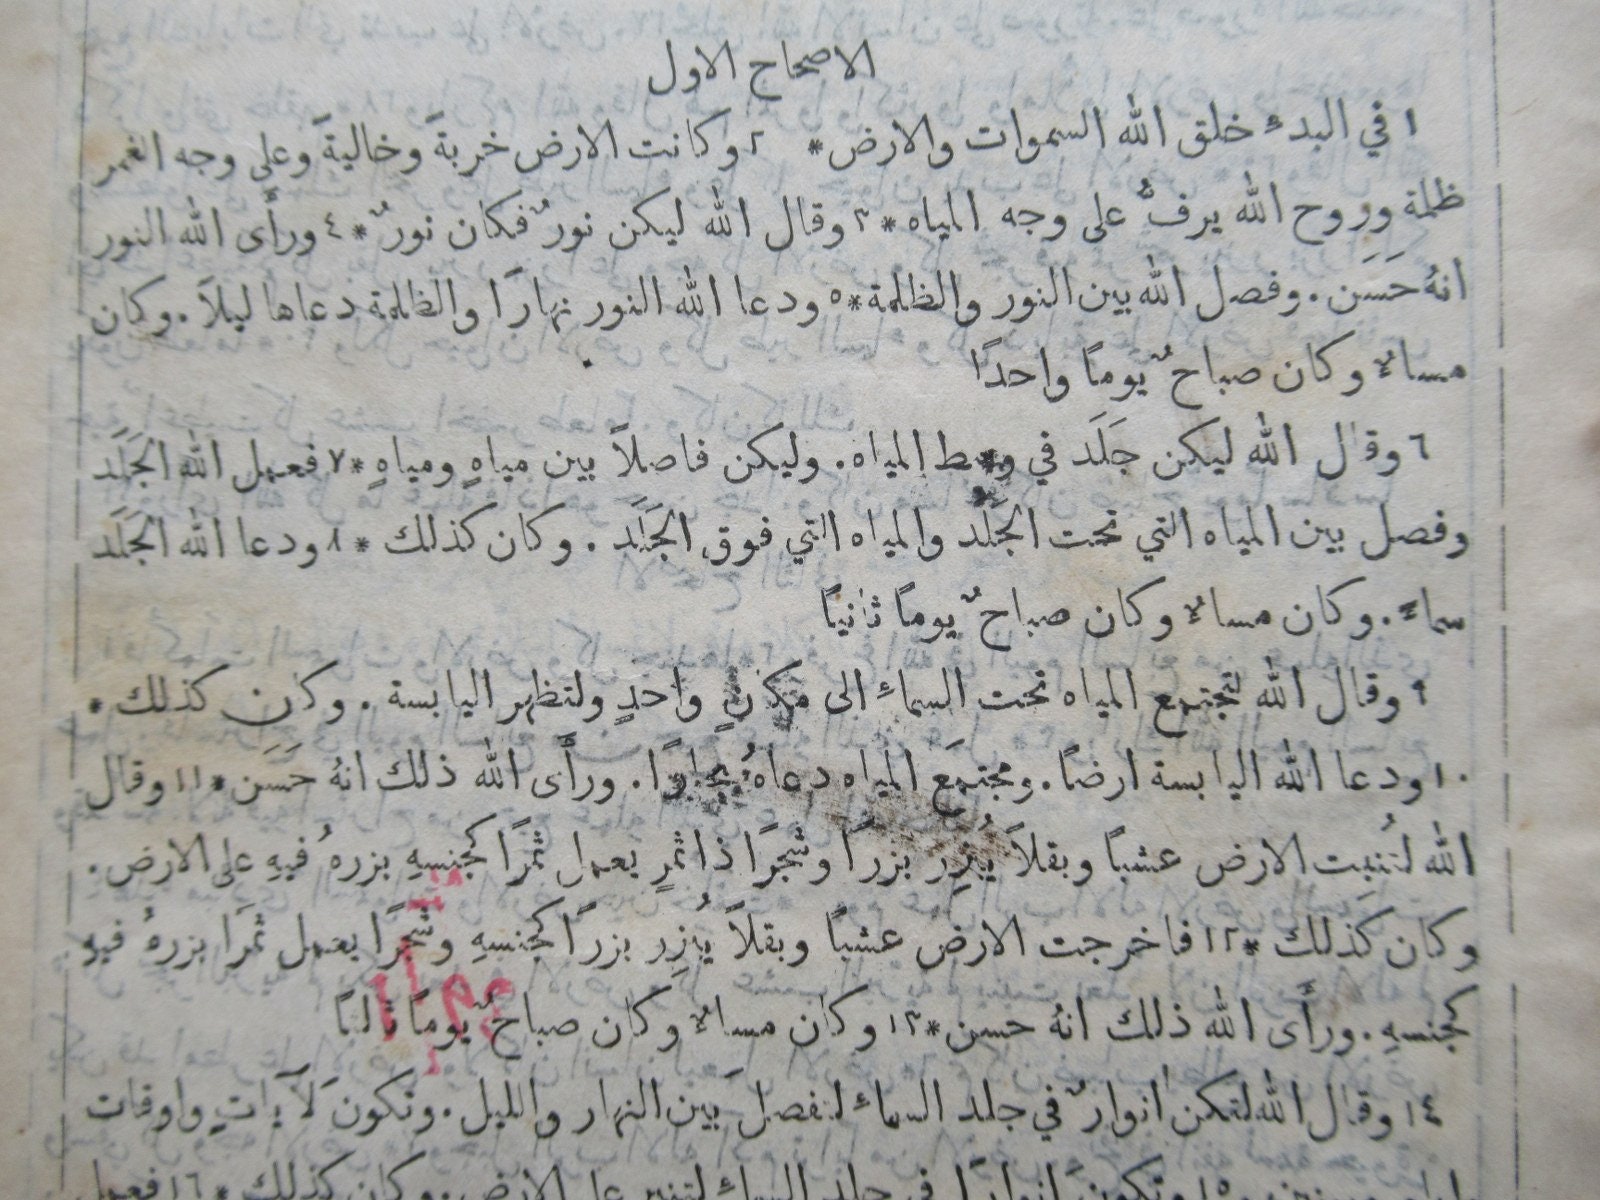 الاصحاح الاول
١ في البدء خلق الله السموات والارض * ٢ وكانت الارض خربةً وخاليةً وعلى وجه الغمر
ظلمة وروح الله يرفُّ على وجه المياه * ٣ وقال الله ليكن نورٌ فكان نورٌ * ٤ ورأَى الله النور
انهُ حَسَن . وفصل الله بين النور والظلمة * ٥ ودعا الله النور نهارًا والظلمة دعاها ليلاً . وكان
مساءٌ وكان صباحٌ يومًا واحدًا
٦ وقال الله ليكن جَلَد في وسط المياه . وليكن فاصلاً بين مياهٍ ومياهٍ * ٧ فعمل الله الجَلَد
وفصل بين المياه التي تحت الجَلَد والمياه التي فوق الجَلَد . وكان كذلك * ٨ ودعا الله الجَلَد
سماءً . وكان مساءٌ وكان صباحٌ يومًا ثانيًا
٩ وقال الله لتجتمع المياه تحت السماء الى مكانٍ واحدٍ ولتظهر اليابسة . وكان كذلك *
١٠ ودعا الله اليابسة ارضًا . ومجتمَع المياه دعاهُ بحارًا . ورأَى الله ذلك انهُ حَسَن * ١١ وقال
الله لتُنبِت الارض عشبًا وبقلاً يُبزِر بزرًا وشجرًا ذا ثمرٍ يعمل ثمرًا كجنسهِ بزرهُ فيهِ على الارض .
وكان كذلك * ١٢ فاخرجت الارض عشبًا وبقلاً يُبزِر بزرًا كجنسهِ وشجرًا يعمل ثمرًا بزرهُ فيهِ
كجنسهِ . ورأَى الله ذلك انهُ حسن * ١٣ وكان مساءٌ وكان صباحٌ يومًا ثالثًا
١٤ وقال الله لتكن انوارٌ في جلد السماء لتفصل بين النهار والليل . وتكون لآياتٍ واوقات
١٥ وتكون انوارًا في جلد السماء لتنير على الارض . وكان كذلك * ١٦ فعمل